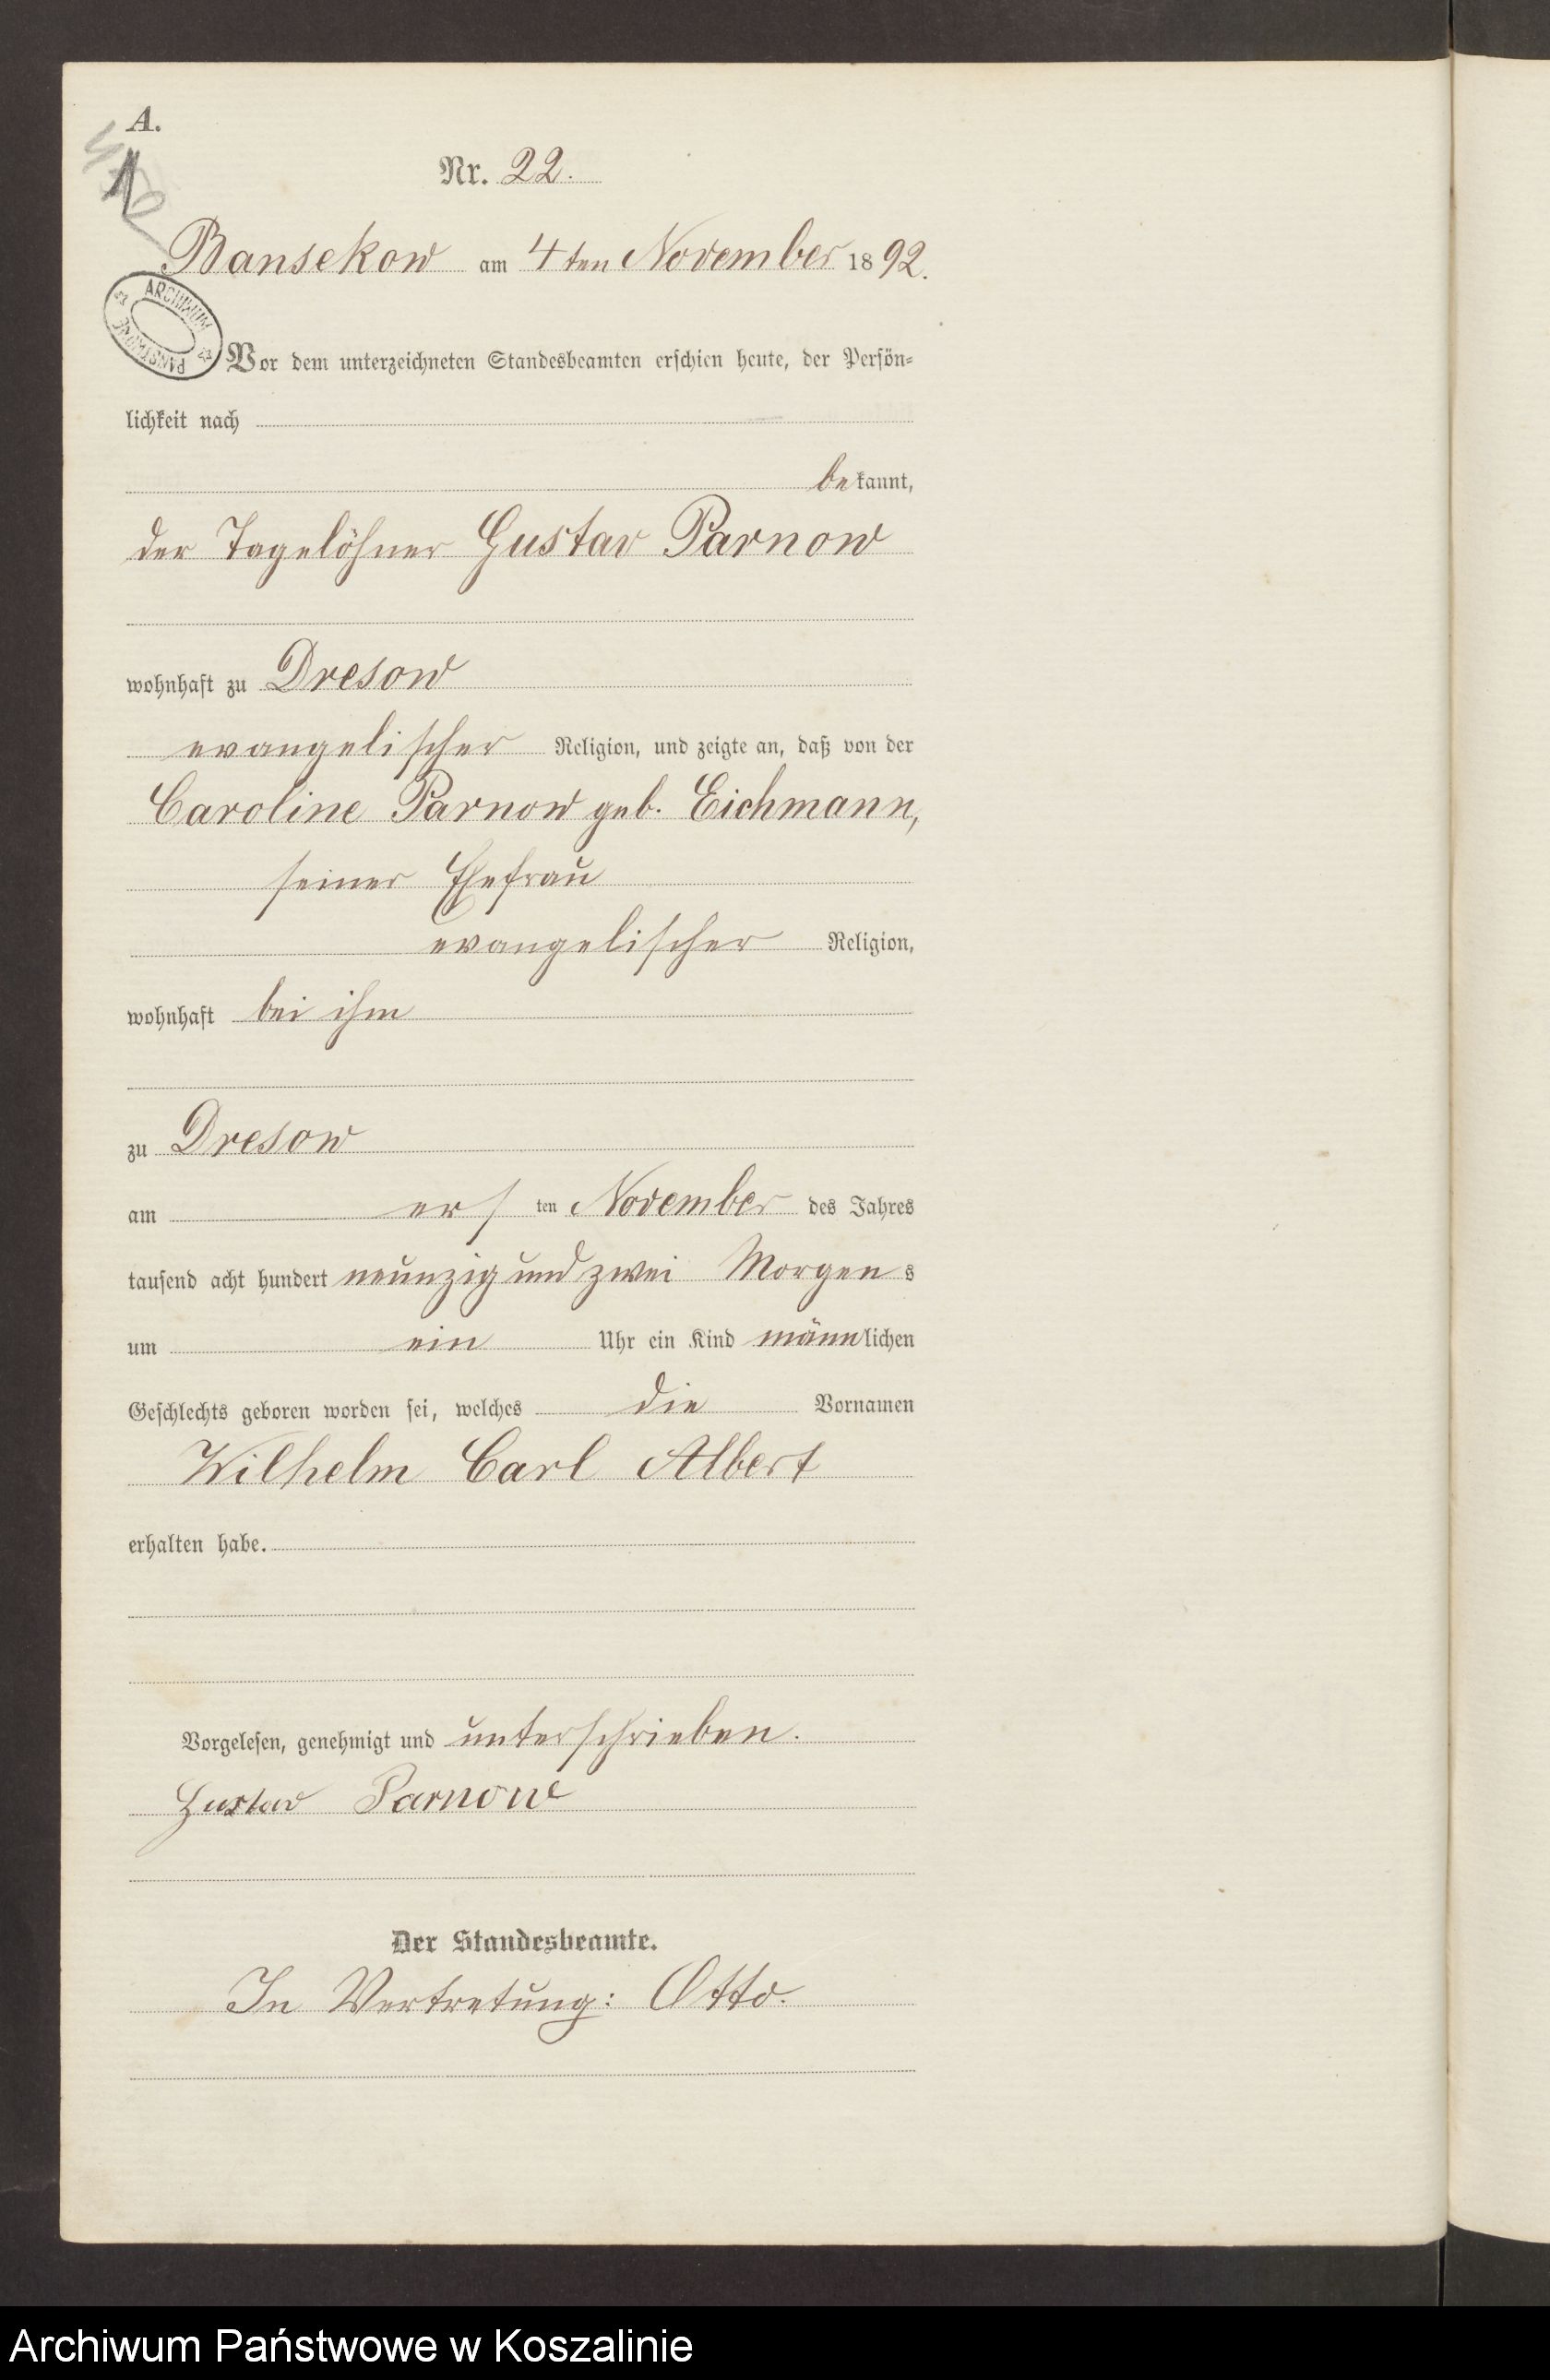 A.
Nr. 22.
Bansekow am 4ten November 1892.
ARCHIWUM PAŃSTWOWE
Vor dem unterzeichneten Standesbeamten erschien heute, der Persön-
lichkeit nach
bekannt,
der Tagelöhner Gustav Parnow
wohnhaft zu Dresow
evangelischer Religion, und zeigte an, daß von der
Caroline Parnow geb. Eichmann,
seiner Ehefrau
evangelischer Religion,
wohnhaft bei ihm
zu Dresow
am ersten November des Jahres
tausend acht hundert neunzig und zwei Morgens
um ein Uhr ein Kind männlichen
Geschlechts geboren worden sei, welches die Vornamen
Wilhelm Carl Albert
erhalten habe.
Vorgelesen, genehmigt und unterschrieben.
Gustav Parnow
Der Standesbeamte.
In Vertretung: Otto.
Archiwum Państwowe w Koszalinie